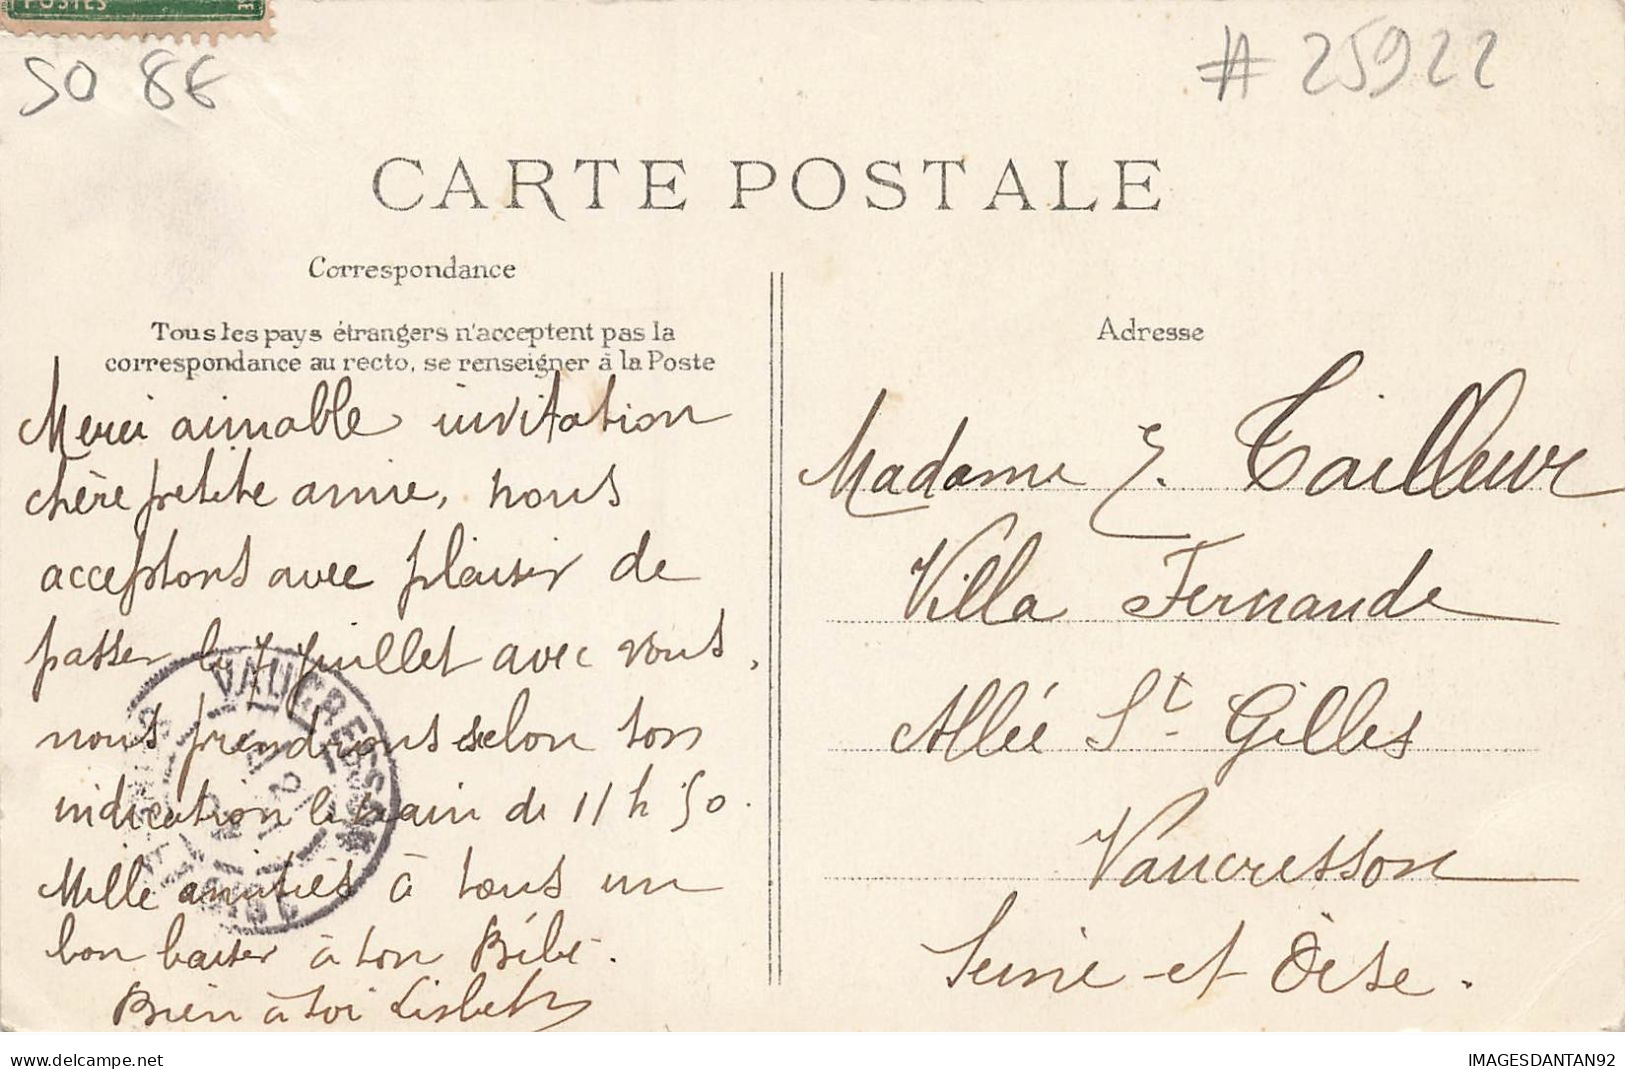 POSTES
50 8€
# 25922
CARTE POSTALE
Correspondance
Tous les pays étrangers n'acceptent pas la
correspondance au recto, se renseigner à la Poste
Merci aimable invitation
chère petite amie, nous
acceptons avec plaisir de
passer le 7 juillet avec vous,
nous prendrons selon ton
indication le train de 11 h 50.
Mille amitiés à tous un
bon baiser à ton Bébé.
Bien à toi Lisbeth
VAUCRESSON
SEINE-ET-OISE
Adresse
Madame E. Tailleur
Villa Fernande
Allée St Gilles
Vaucresson
Seine-et-Oise.
www.delcampe.net
IMAGESDANTAN92